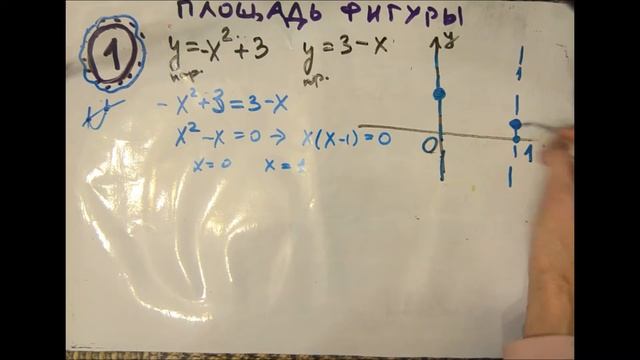 ПЛОЩАДЬ ФИГУРЫ
1 y=-x²+3 y=3-x y
пр. пр.
-x²+3=3-x
x²-x=0 → x(x-1)=0
x=0 x=1
0 1